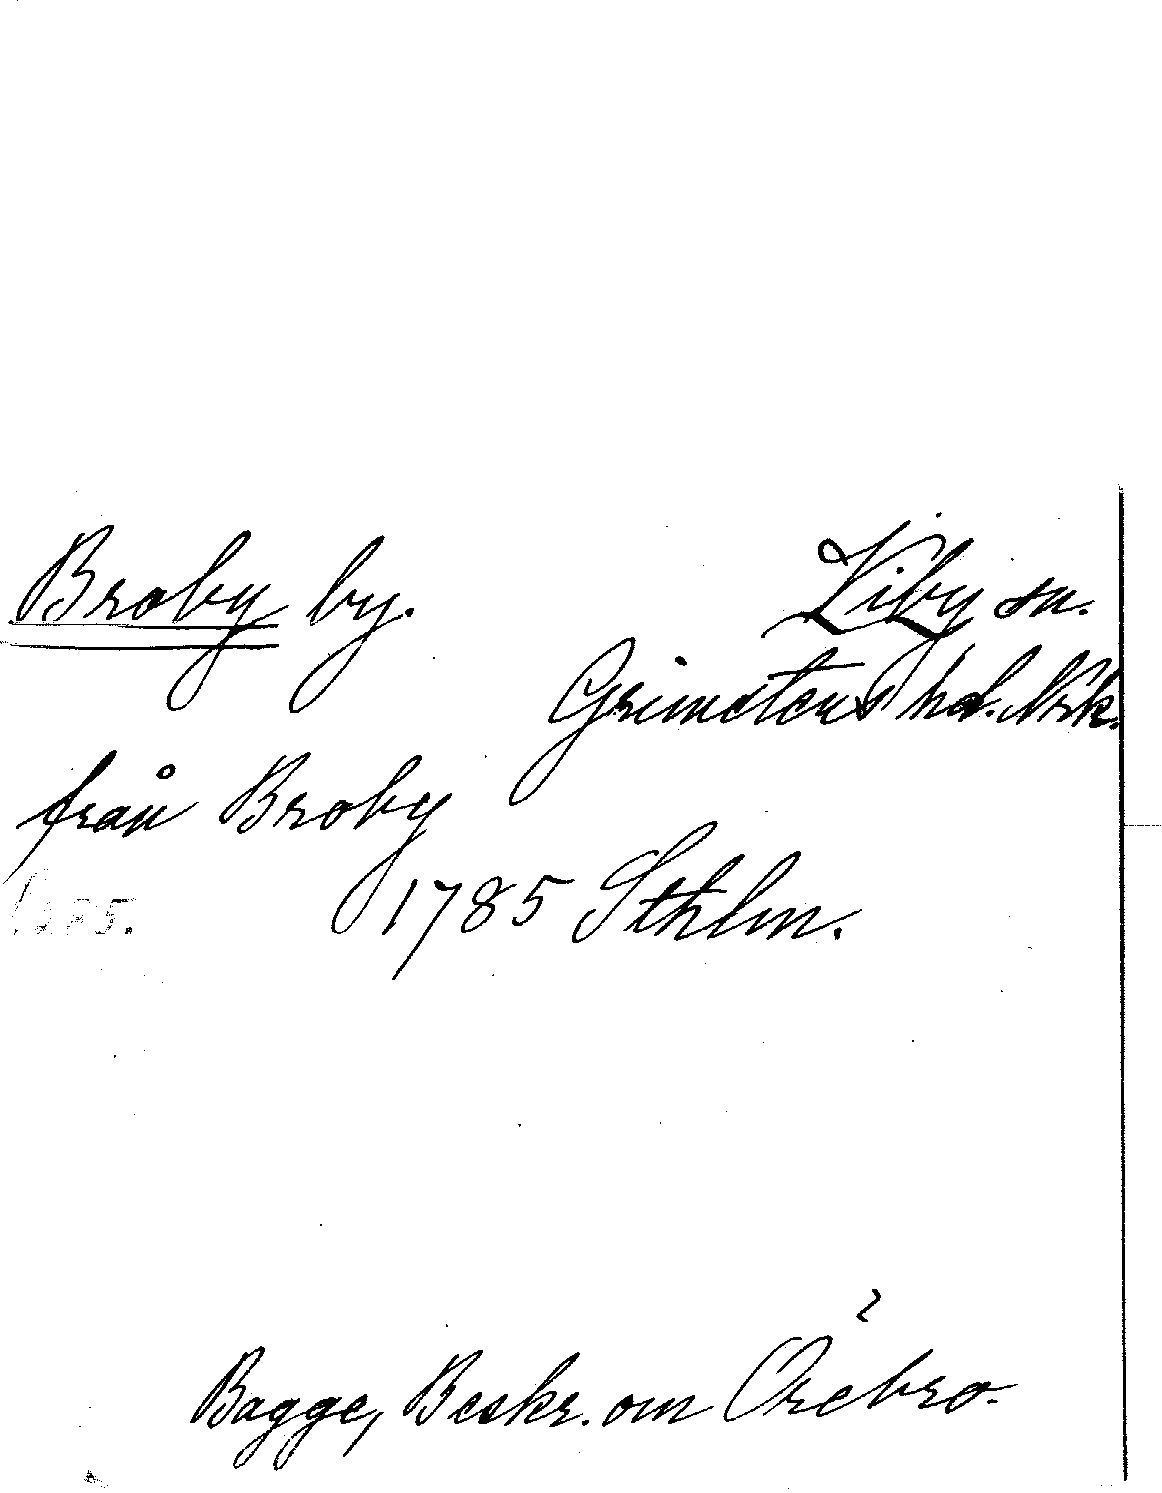 Broby by. Viby sn.
Grimstens hd. Nrk.
från Broby
1785 Sthlm.
Bagge, Beskr. om Örebro.